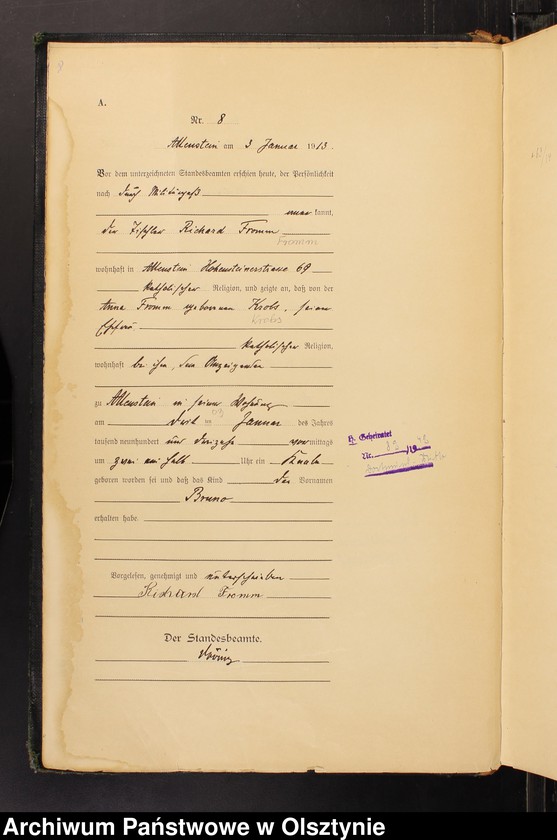 8
A.
Nr. 8
Allenstein am 3 Januar 1913.
Vor dem unterzeichneten Standesbeamten erschien heute, der Persönlichkeit
nach durch Militärpaß
kannt,
der Tischler Richard Fromm
Fromm
wohnhaft in Allenstein Hohensteinerstrasse 69
katholischer Religion, und zeigte an, daß von der
Anna Fromm geborenen Krebs, seiner
Krebs
Ehefrau
katholischer Religion,
wohnhaft bei ihm, dem Anzeigenden
zu Allenstein in seiner Wohnung
am drei Januar des Jahres
03
tausend neunhundert und dreizehn vormittags
um zwei ein halb Uhr ein Knabe
geboren worden sei und daß das Kind den Vornamen
Bruno
erhalten habe.
Vorgelesen, genehmigt und unterschrieben
Richard Fromm
Der Standesbeamte.
H. Geheiratet
Nr. /19
Archiwum Państwowe w Olsztynie